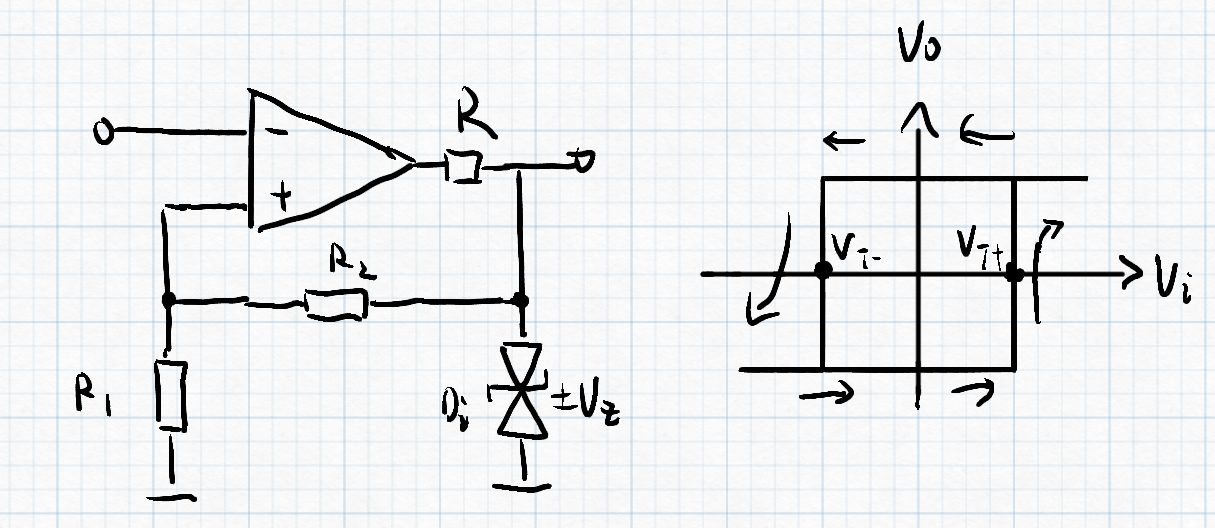 -
+
R
R₂
R₁
Di
±Vz
Vo
VT-
VT+
Vi